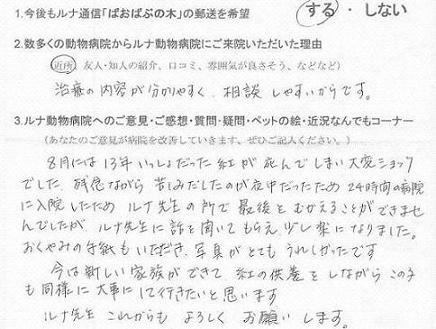 1.今後もルナ通信「ばおばぶの木」の郵送を希望 する・しない
2.数多くの動物病院からルナ動物病院にご来院いただいた理由
近所、友人・知人の紹介、口コミ、雰囲気が良さそう、などなど)
治療の内容が分かりやすく、相談しやすいからです。
3.ルナ動物病院へのご意見・ご感想・質問・疑問・ペットの絵・近況なんでもコーナー
(あなたのご意見が病院を改善していきます、ぜひご記入ください。)
8月には13年いっしょだった紅が死んでしまい大変ショック
でした。残念ながら苦しみだしたのが夜中だったため24時間の病院
に入院したため ルナ先生の所で最後をむかえることができませ
んでしたが、ルナ先生に話を聞いてもらえ少し楽になりました。
おくやみの手紙もいただき、写真がとてもうれしかったです
今は新しい家族ができて 紅の供養をしながらこの子
も同様に大事にして行きたいと思います
ルナ先生 これからもよろしくお願いします。